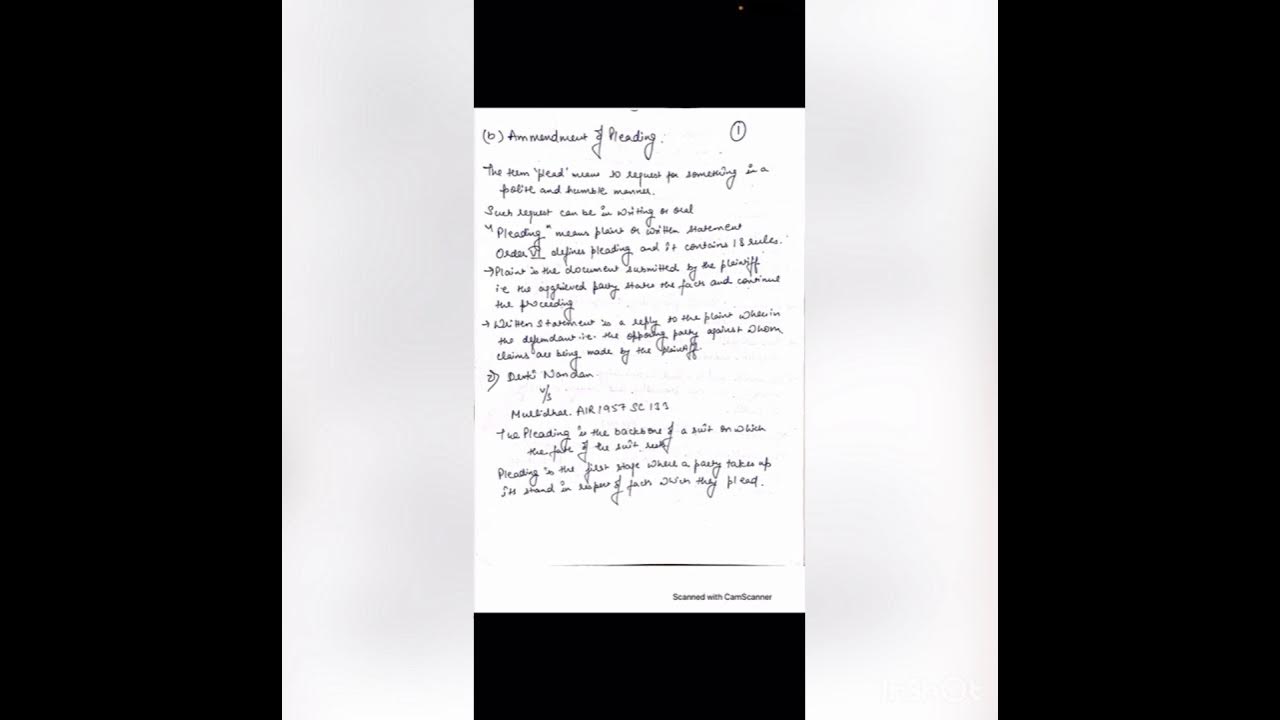 (b) Ammendment of Pleading.
1
The term 'plead' means to request for something in a
polite and humble manner.
Such request can be in writing or oral
"Pleading" means plaint or written statement
Order VI defines pleading and it contains 18 rules.
→ Plaint is the document submitted by the plaintiff
i.e the aggrieved party states the facts and continue
the proceeding
→ Written statement is a reply to the plaint wherein
the defendant i.e. the opposing party against whom
claims are being made by the plaintiff.
Nandan
v/s
AIR 1957 SC 133
The Pleading is the backbone of a suit on which
the fate of the suit rests
Pleading is the first stage where a party takes up
its stand in respect of facts which they plead.
Scanned with CamScanner
InShOt